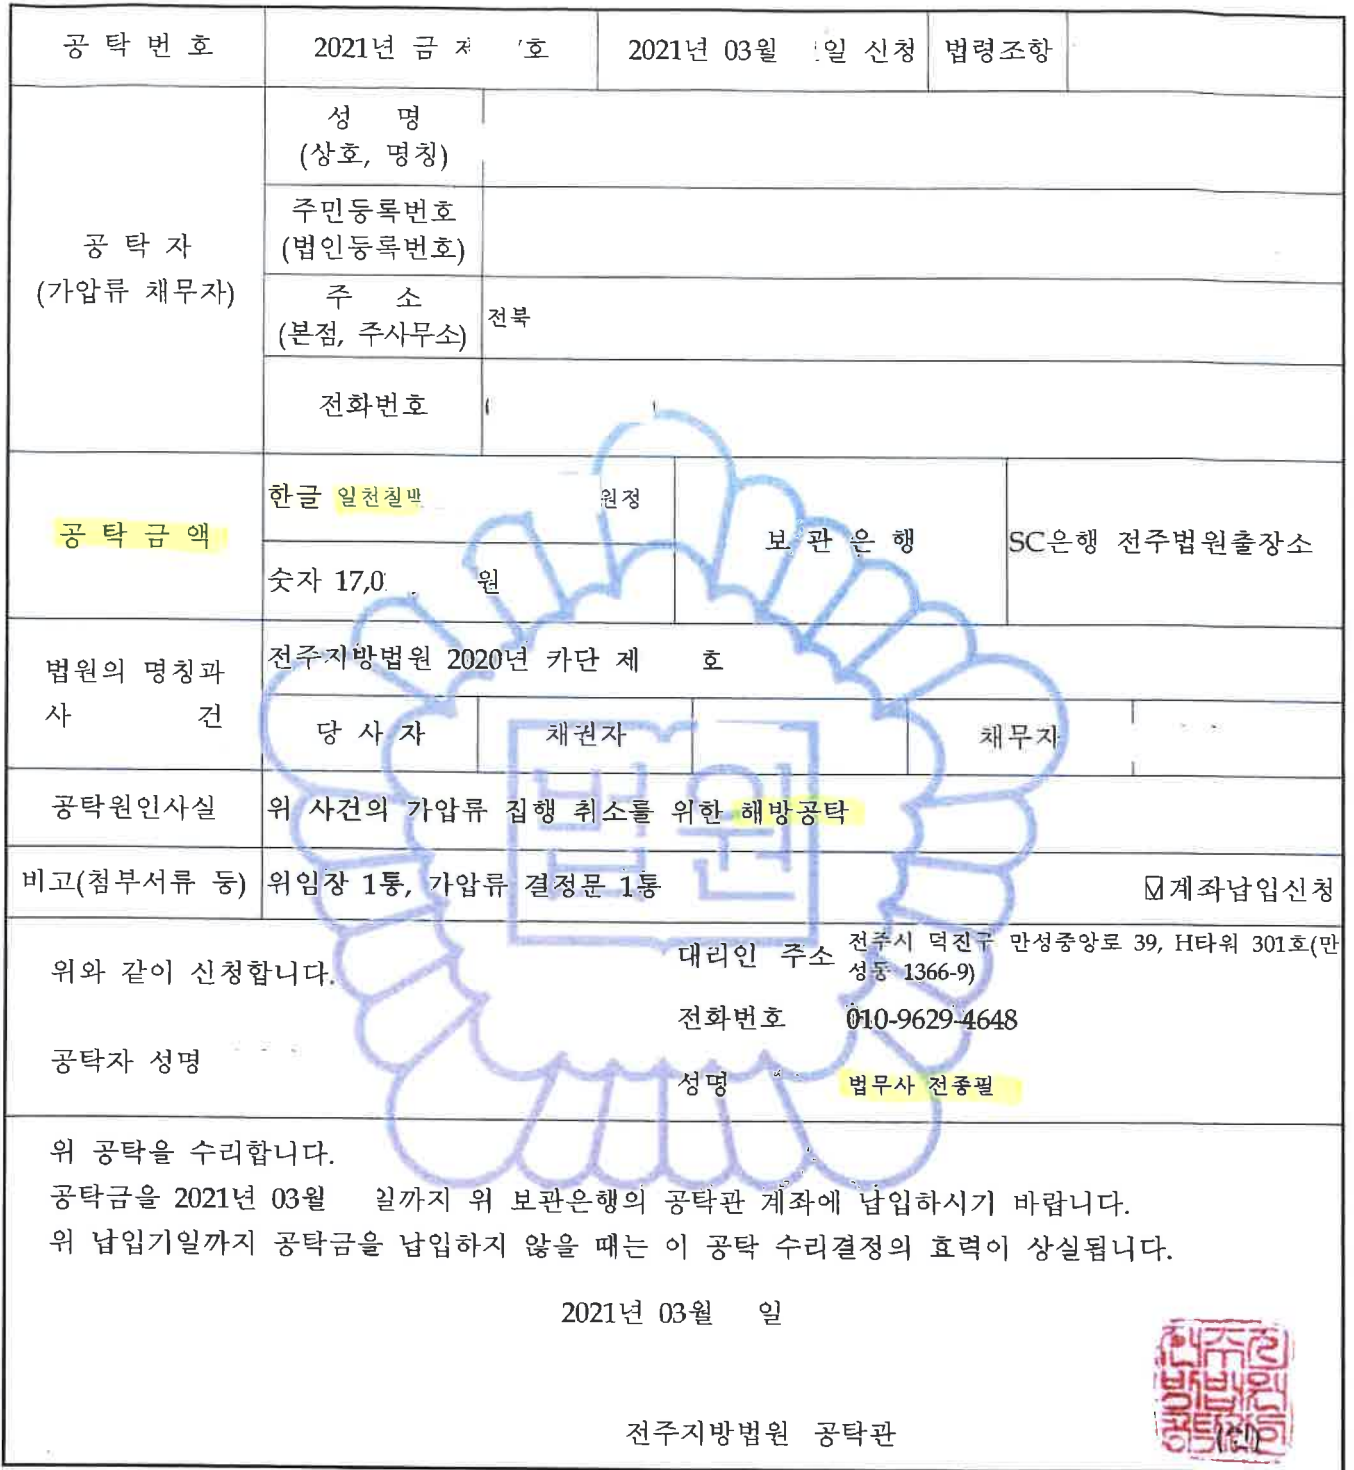 공 탁 번 호
2021년 금 제 호
2021년 03월 일 신청
법령조항
공 탁 자
(가압류 채무자)
성 명
(상호, 명칭)
주민등록번호
(법인등록번호)
주 소
(본점, 주사무소)
전북
전화번호
공 탁 금 액
한글 일천칠백 원정
숫자 17,0 원
보 관 은 행
SC은행 전주법원출장소
법원의 명칭과
사 건
전주지방법원 2020년 카단 제 호
당 사 자
채권자
채무자
공탁원인사실
위 사건의 가압류 집행 취소를 위한 해방공탁
비고(첨부서류 등)
위임장 1통, 가압류 결정문 1통
☑계좌납입신청
위와 같이 신청합니다.
대리인 주소 전주시 덕진구 만성중앙로 39, H타워 301호(만
성동 1366-9)
전화번호 010-9629-4648
공탁자 성명
성명 법무사 전종필
위 공탁을 수리합니다.
공탁금을 2021년 03월 일까지 위 보관은행의 공탁관 계좌에 납입하시기 바랍니다.
위 납입기일까지 공탁금을 납입하지 않을 때는 이 공탁 수리결정의 효력이 상실됩니다.
2021년 03월 일
전주지방법원 공탁관
(인)
법원